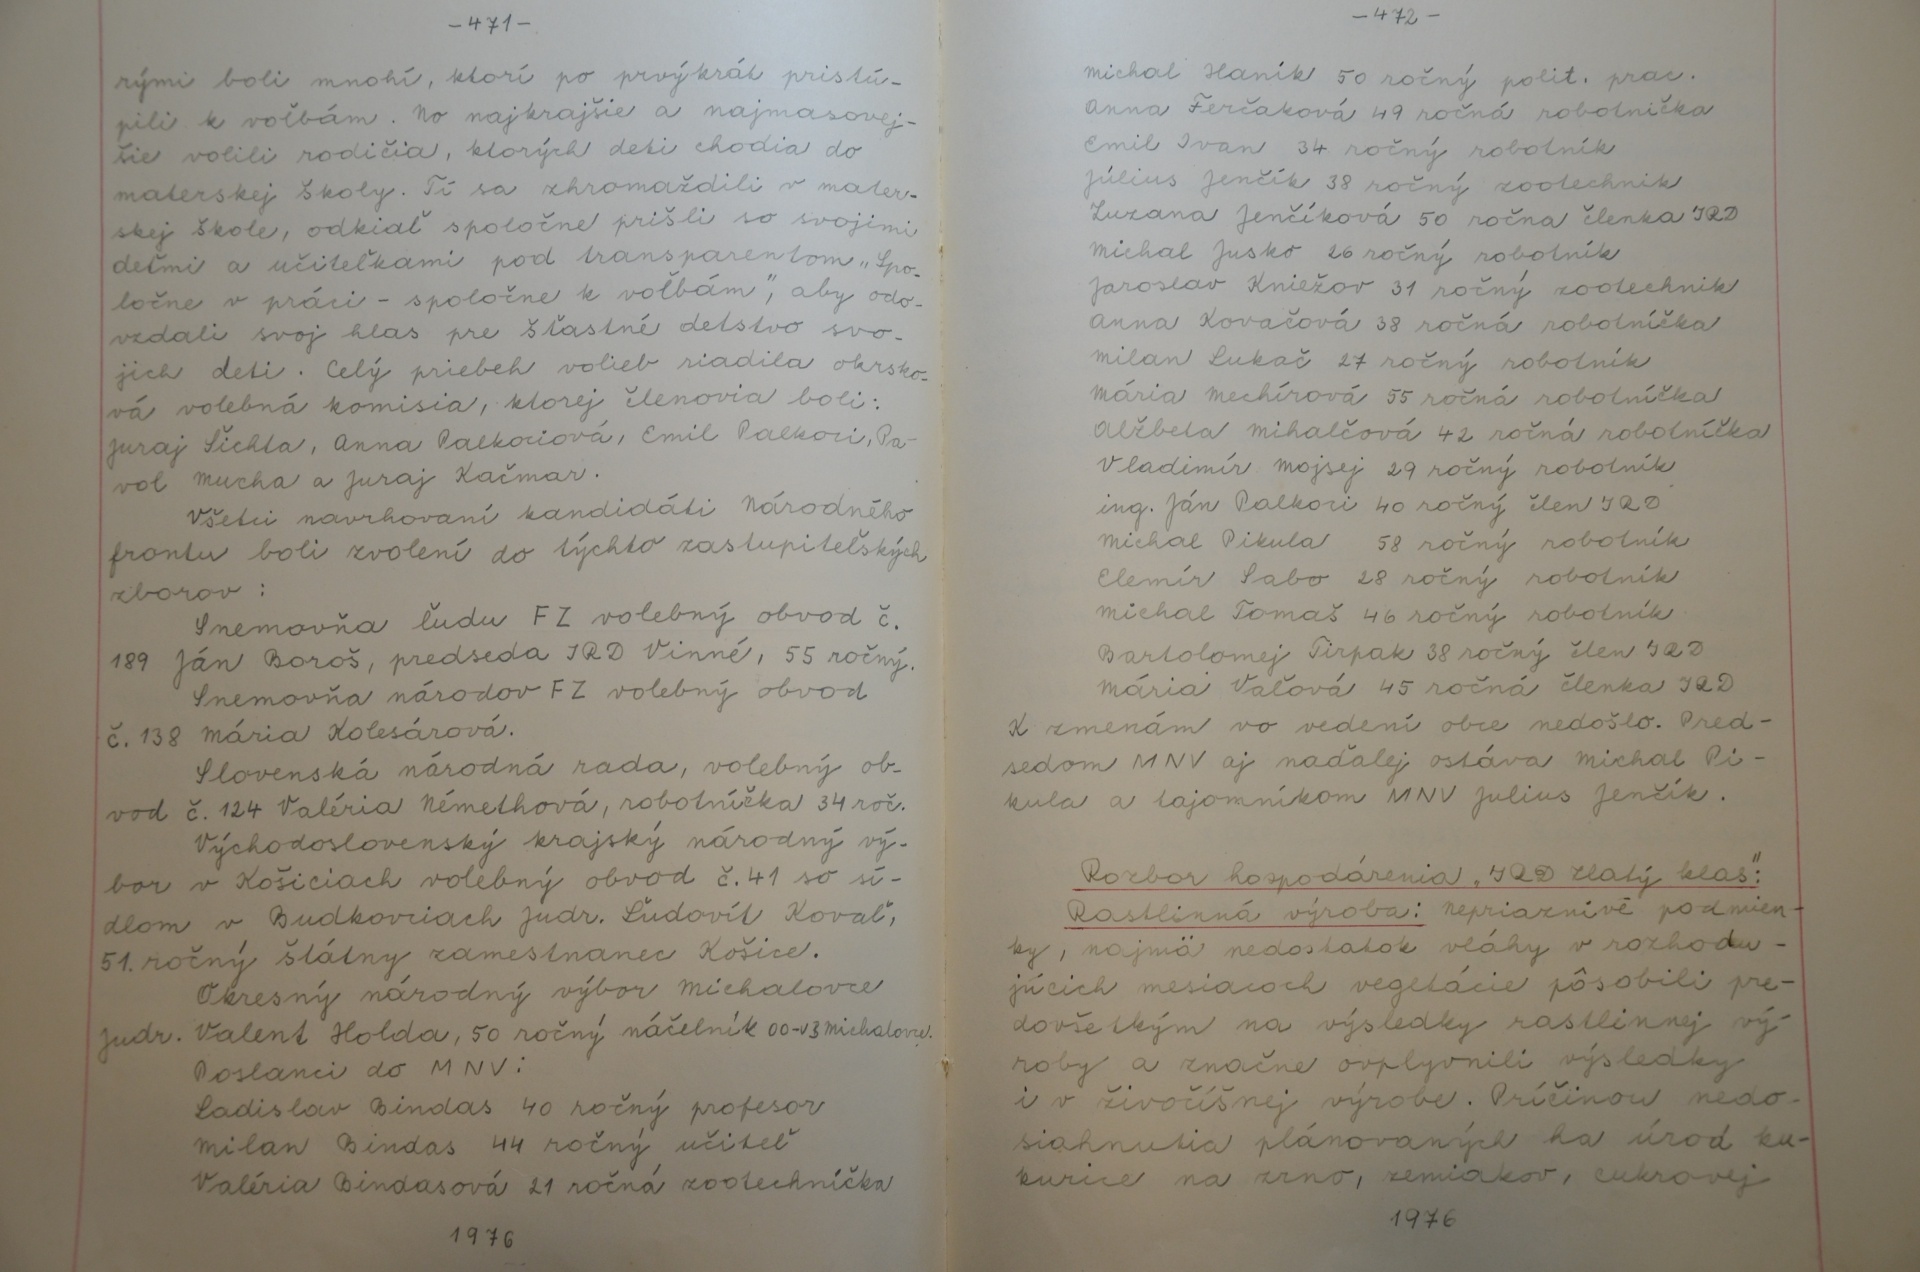 -471-
rými boli mnohí, ktorí po prvýkrát pristú-
pili k voľbám. No najkrajšie a najmasovej-
šie volili rodičia, ktorých deti chodia do
materskej školy. Tí sa zhromaždili v mater-
skej škole, odkiaľ spoločne prišli so svojimi
deťmi a učiteľkami pod transparentom „Spo-
ločne v práci - spoločne k voľbám", aby odo-
vzdali svoj hlas pre šťastné detstvo svo-
jich deti. Celý priebeh volieb riadila okrsko-
vá volebná komisia, ktorej členovia boli:
Juraj Šichta, Anna Palkociová, Emil Palkoci, Pa-
vol Mucha a Juraj Kačmar.
Všetci navrhovaní kandidáti Národného
frontu boli zvolení do týchto zastupiteľských
zborov:
Snemovňa ľudu FZ volebný obvod č.
189 Ján Boroš, predseda JRD Vinné, 55 ročný.
Snemovňa národov FZ volebný obvod
č. 138 Mária Kolesárová.
Slovenská národná rada, volebný ob-
vod č. 124 Valéria Némethová, robotníčka 34 roč.
Východoslovenský krajský národný vý-
bor v Košiciach volebný obvod č. 41 so sí-
dlom v Budkovciach Judr. Ľudovít Kovaľ,
51. ročný štátny zamestnanec Košice.
Okresný národný výbor Michalovce
Judr. Valent Holda, 50 ročný náčelník OO-VB Michalovce.
Poslanci do MNV:
Ladislav Bindas 40 ročný profesor
Milan Bindas 44 ročný učiteľ
Valéria Bindasová 21 ročná zootechníčka
1976
-472-
Michal Haník 50 ročný polit. prac.
Anna Ferčaková 49 ročná robotníčka
Emil Ivan 34 ročný robotník
Július Jenčík 38 ročný zootechnik
Zuzana Jenčíková 50 ročna členka JRD
Michal Jusko 26 ročný robotník
Jaroslav Kniežov 31 ročný zootechnik
Anna Kovačová 38 ročná robotníčka
Milan Lukač 27 ročný robotník
Mária Mechírová 55 ročná robotníčka
Alžbeta Mihalčová 42 ročná robotníčka
Vladimír Mojsej 29 ročný robotník
ing. Ján Palkoci 40 ročný člen JRD
Michal Pikula 58 ročný robotník
Elemír Sabo 28 ročný robotník
Michal Tomaš 46 ročný robotník
Bartolomej Tirpak 38 ročný člen JRD
Mária Vaľová 45 ročná členka JRD
K zmenám vo vedení obce nedošlo. Pred-
sedom MNV aj naďalej ostáva Michal Pi-
kula a tajomníkom MNV Julius Jenčík.
Rozbor hospodárenia „JRD Zlatý klas":
Rastlinná výroba: Nepriaznivé podmien-
ky, najmä nedostatok vláhy v rozhodu-
júcich mesiacoch vegetácie pôsobili pre-
dovšetkým na výsledky rastlinnej vý-
roby a značne ovplyvnili výsledky
i v živočíšnej výrobe. Príčinou nedo-
siahnutia plánovaných ha úrod ku-
kurice na zrno, zemiakov, cukrovej
1976